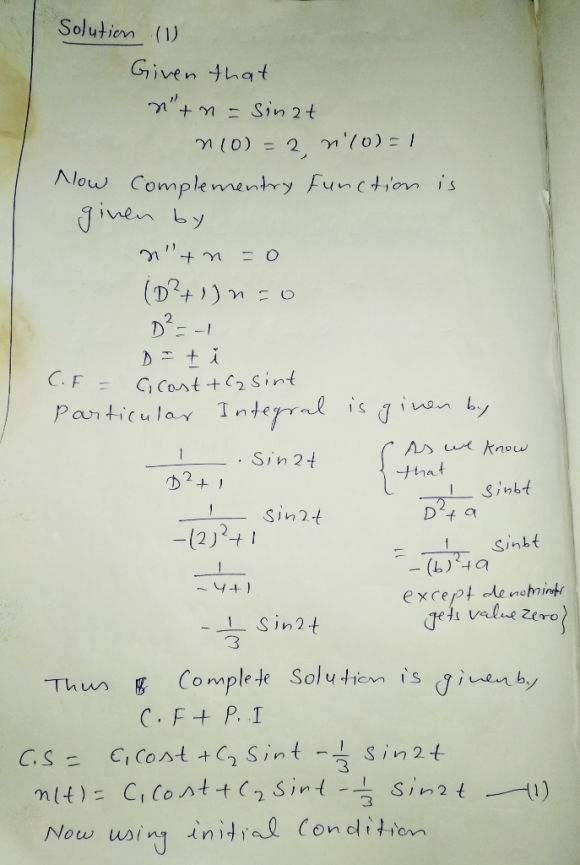 Solution (1)
Given that
x'' + x = Sin2t
x(0) = 2, x'(0) = 1
Now Complementry Function is
given by
x'' + x = 0
(D²+1)x = 0
D² = -1
D = ± i
C.F = C₁Cost + C₂Sint
Particular Integral is given by
1/(D²+1) . Sin2t
1/(-(2)²+1) Sin2t
1/(-4+1)
-1/3 Sin2t
{ As we know
that
1/(D²+a) Sinbt
= 1/(-(b)²+a) Sinbt
except denominatr
gets value zero}
Thus Complete Solution is given by
C.F + P.I
C.S = C₁Cost + C₂Sint - 1/3 Sin2t
x(t) = C₁Cost + C₂Sint - 1/3 Sin2t —(1)
Now using initial Condition